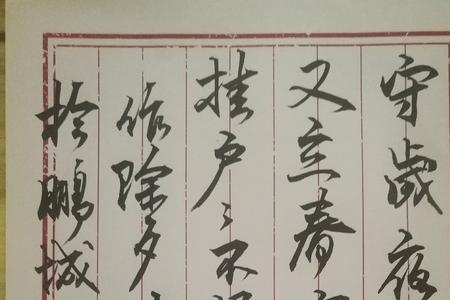 守歲夜
又立春
挂户户不
作除夕
於鵬城